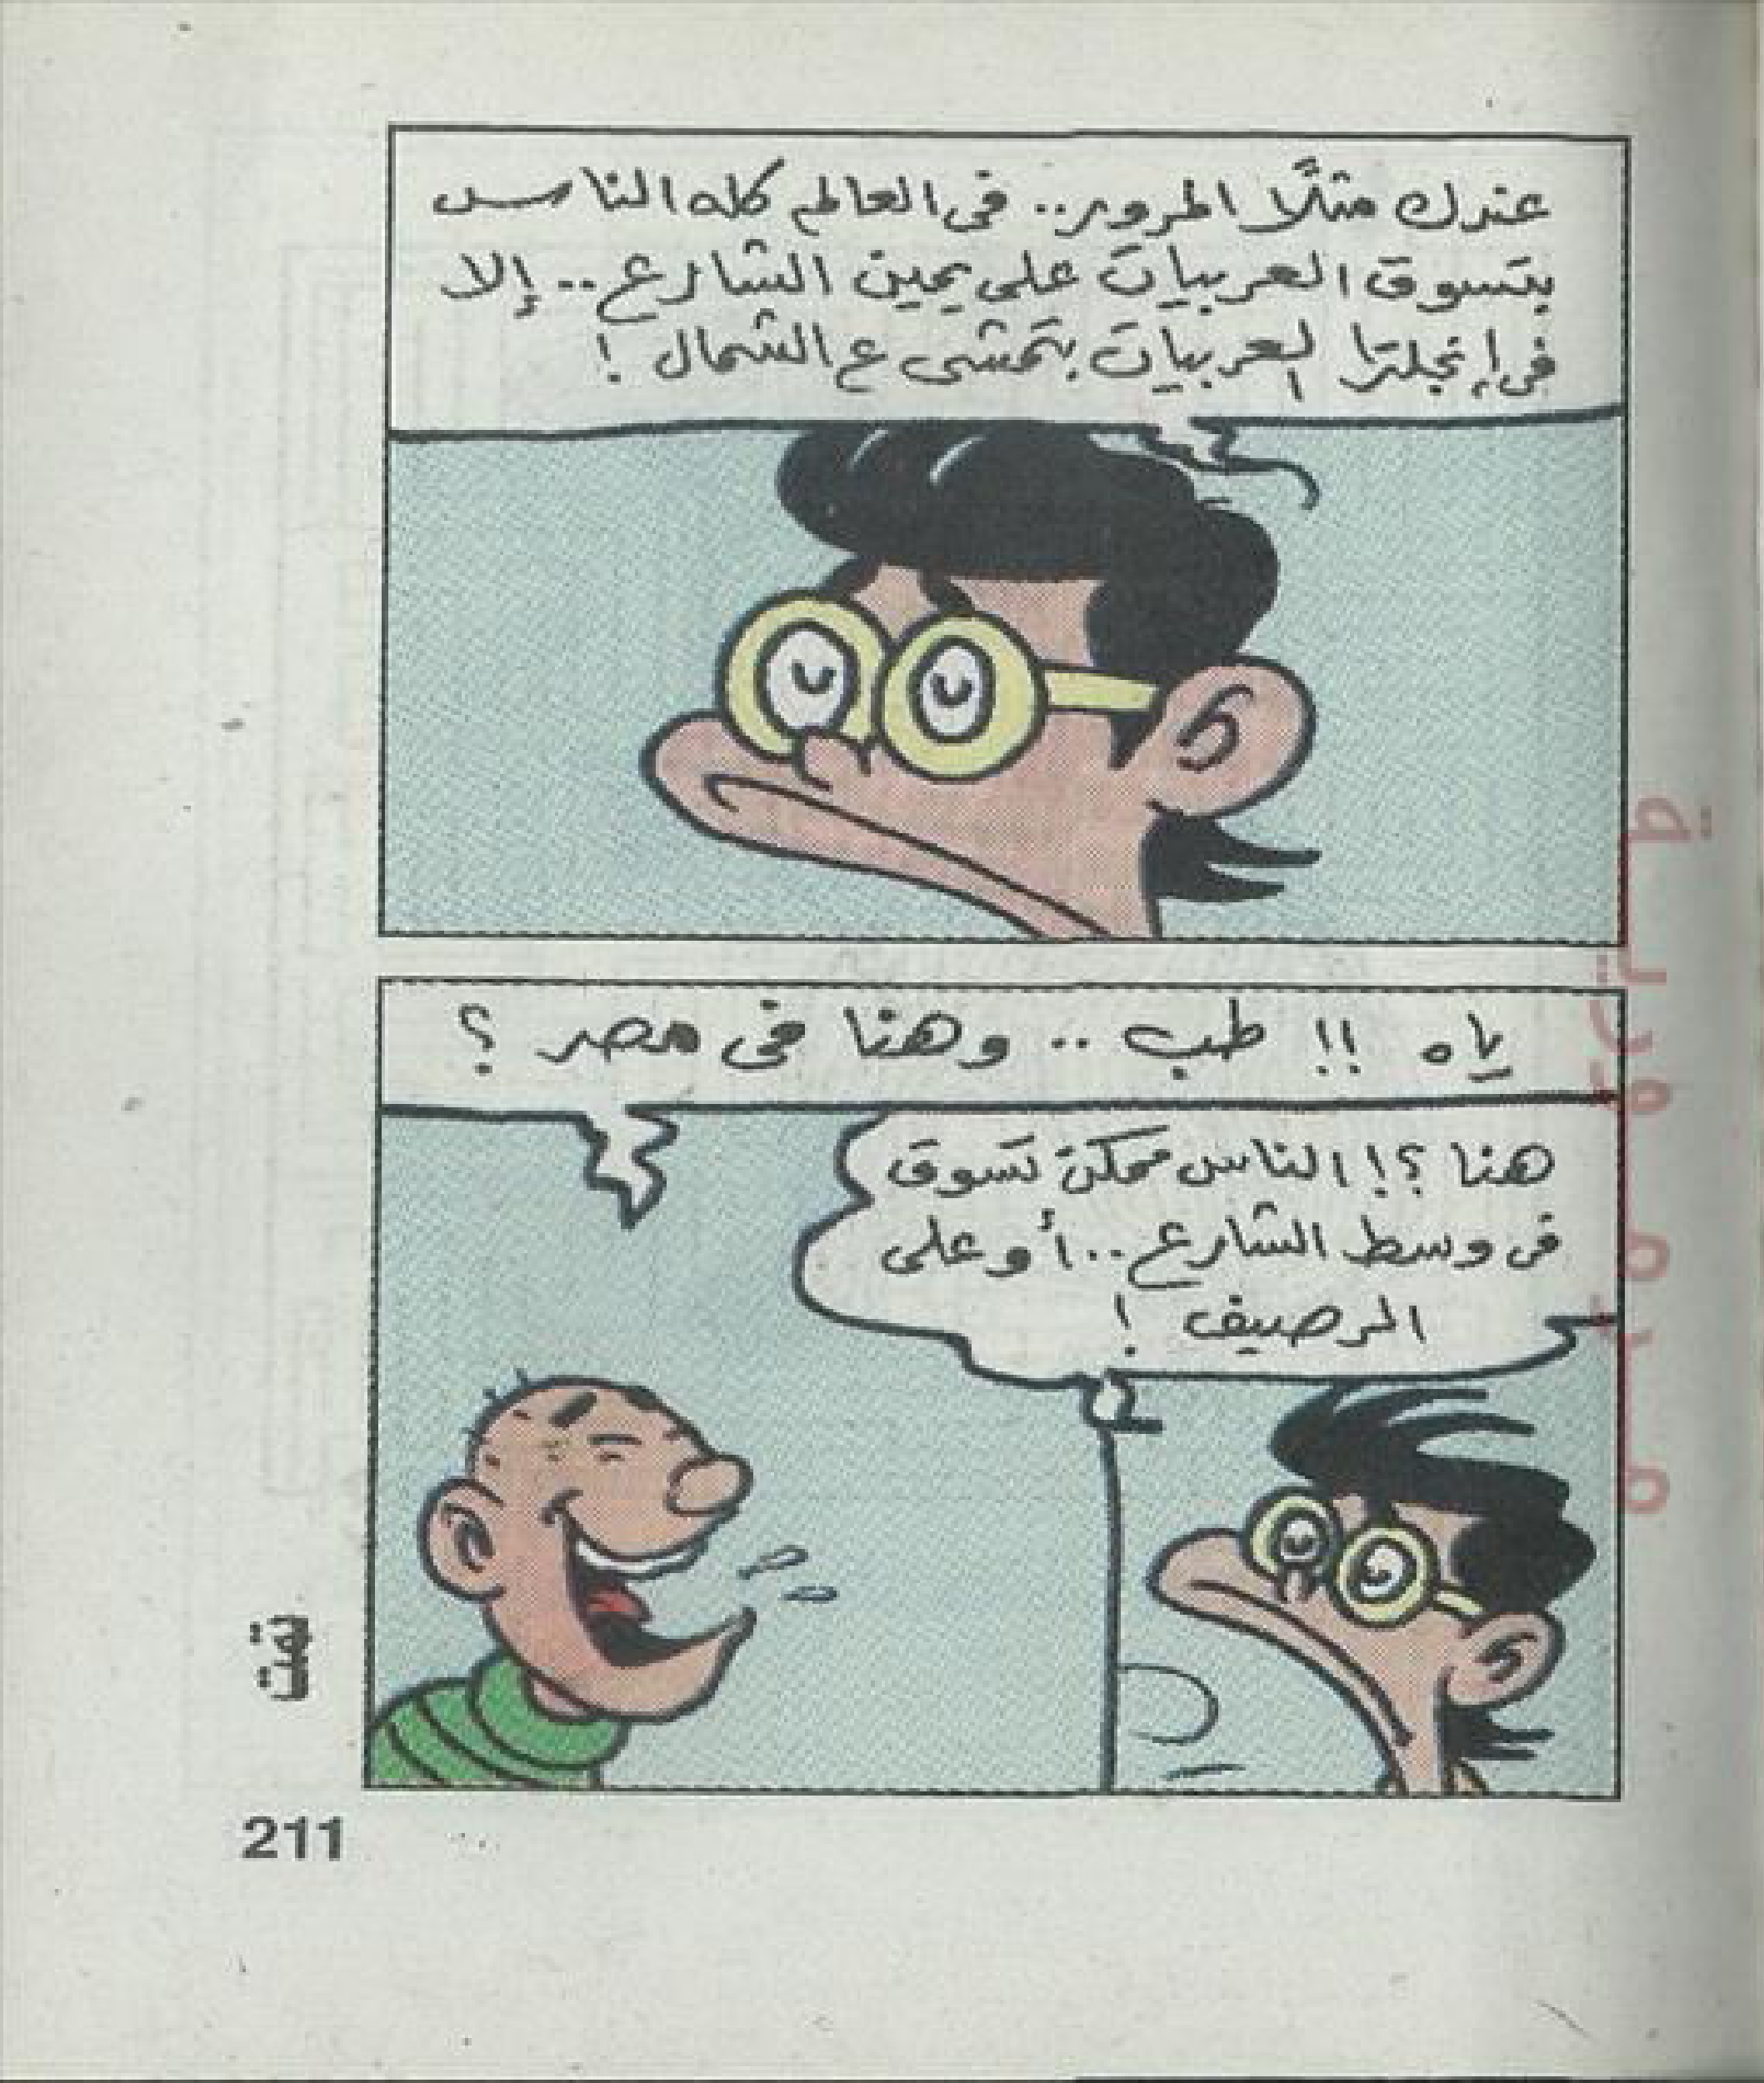 عندك مثلًا المرور.. فى العالم كله الناس
بتسوق العربيات على يمين الشارع.. إلا
فى إنجلترا العربيات بتمشى ع الشمال !
ياه !! طب .. وهنا فى مصر ؟
هنا ؟! الناس ممكن تسوق
فى وسط الشارع.. أو على
الرصيف !
تمت
211